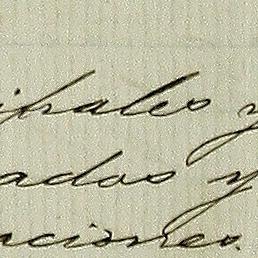 ipales y
ados y
aciones.